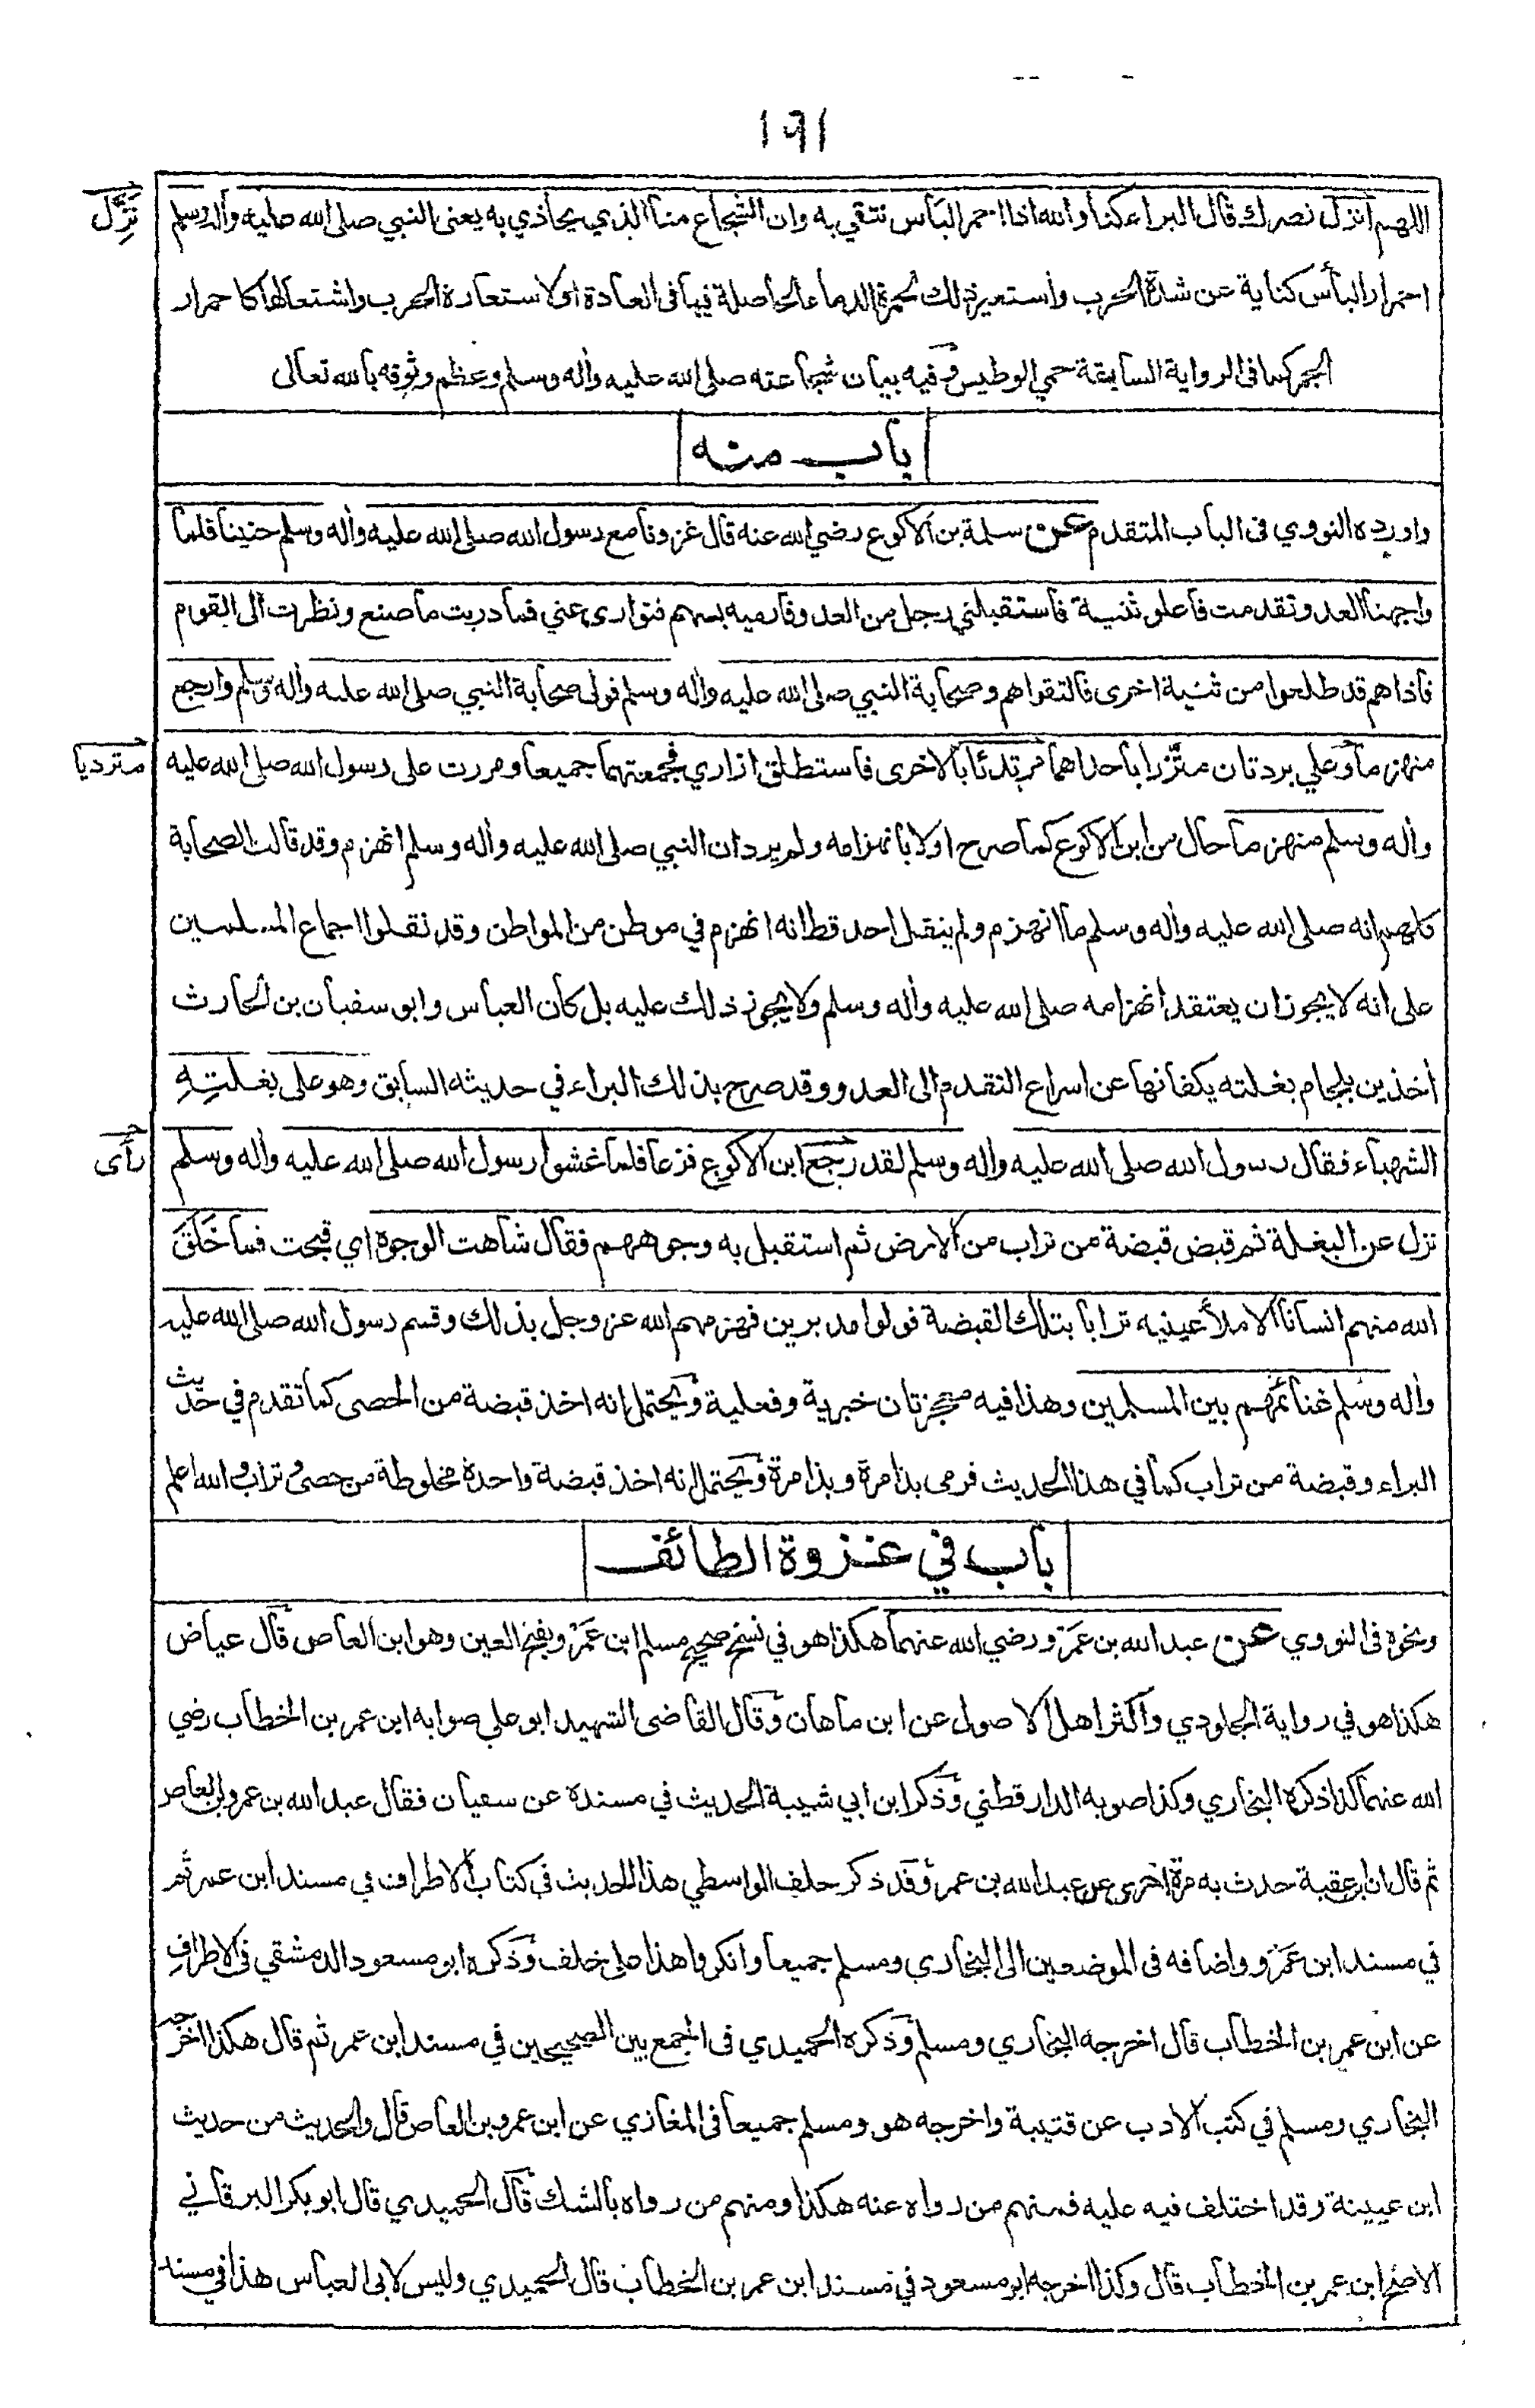 ١٩١
اللهم أنزل نصرك قال البراء كنا والله اذا احمر البأس نتقي به وان الشجاع منا الذي يحاذي به يعنى النبي صلى الله عليه وأله وسلم
نَزِّل
احمرار البأس كناية عن شدة الحرب وأستعير ذلك لحمرة الدماء الحاصلة فيها فى العادة او لاستعارة الحرب واشتعالها كاحمرار
الجمر كما فى الرواية السابقة حمي الوطيس وفيه بيان شجاعته صلى الله عليه وأله وسلم وعظم وثوقه بالله تعالى
باب منه
واورده النووي فى الباب المتقدم عن سلمة بن الاكوع رضي الله عنه قال غزونا مع رسول الله صلى الله عليه وأله وسلم حنينا فلما
واجهنا العدو تقدمت فأعلو ثنية فاستقبلني رجل من العدو فارميه بسهم فتوارى عني فما دريت ما صنع ونظرت الى القوم
فاذا هم قد طلعوا من ثنية اخرى فالتقوا هم وصحابة النبي صلى الله عليه وأله وسلم فولى صحابة النبي صلى الله عليه وأله وسلم وارجع
منهزما وعلي بردتان متّزرا باحداهما مرتدئا بالاخرى فاستطلق ازاري فجمعتهما جميعا ومررت على رسول الله صلى الله عليه
متر ديا
وأله وسلم منهزما حال من ابن الاكوع كما صرح اولا بانهزامه ولم يرد ان النبي صلى الله عليه وأله وسلم انهزم وقد قالت الصحابة
كلهم انه صلى الله عليه وأله وسلم ما انهزم ولم ينقل احد قط انه انهزم في موطن من المواطن وقد نقلوا اجماع المسلمين
على انه لا يجوز ان يعتقد انهزامه صلى الله عليه وأله وسلم ولا يجوز ذلك عليه بل كان العباس وابو سفيان بن الحارث
أخذين بلجام بغلته يكفانها عن اسراع التقدم الى العدو وقد صرح بذلك البراء في حديثه السابق وهو على بغلتِهِ
الشهباء فقال رسول الله صلى الله عليه وأله وسلم لقد رجع ابن الاكوع فزعا فلما غشوا رسول الله صلى الله عليه وأله وسلم
رأى
نزل عن البغلة ثم قبض قبضة من تراب من الارض ثم استقبل به وجوههم فقال شاهت الوجوه اي قبحت فما خَلَقَ
الله منهم انسانا الا ملأ عينيه ترابا بتلك القبضة فولوا مدبرين فهزمهم الله عز وجل بذلك وقسم رسول الله صلى الله عليه
وأله وسلم غنائمهم بين المسلمين وهذا فيه معجزتان خبرية وفعلية ويحتمل انه اخذ قبضة من الحصى كما تقدم في حديث
البراء وقبضة من تراب كما في هذا الحديث فرمى بذا مرة وبذا مرة ويحتمل انه اخذ قبضة واحدة مخلوطة من حصى وتراب والله اعلم
باب في غزوة الطائف
ونحوه فى النووي عن عبد الله بن عَمرو رضي الله عنهما هكذا هو في نسخ صحيح مسلم ابن عَمرو بفتح العين وهو ابن العاص قال عياض
هكذا هو في رواية الجلودي واكثر اهل الاصول عن ابن ماهان وقال القاضى الشهيد ابو علي صوابه ابن عمر بن الخطاب رضي
الله عنهما كذا ذكره البخاري وكذا صوبه الدارقطني وذكر ابن ابي شيبة الحديث في مسنده عن سفيان فقال عبد الله بن عمرو بن العاص
ثم قال ان ابن عقبة حدث به مرة اخرى عن عبد الله بن عمر وقد ذكر خلف الواسطي هذا الحديث في كتاب الاطراف في مسند ابن عمر ثم
في مسند ابن عَمرو واضافه فى الموضعين الى البخاري ومسلم جميعا وانكروا هذا على خلف وذكره ابو مسعود الدمشقي فى الاطراف
عن ابن عمر بن الخطاب قال اخرجه البخاري ومسلم وذكره الحميدي فى الجمع بين الصحيحين في مسند ابن عمر ثم قال هكذا اخرجه
البخاري ومسلم في كتب الادب عن قتيبة واخرجه هو ومسلم جميعا فى المغازي عن ابن عمرو بن العاص قال والحديث من حديث
ابن عيينة وقد اختلف فيه عليه فمنهم من رواه عنه هكذا ومنهم من رواه بالشك قال الحميدي قال ابو بكر البرقاني
الاصح ابن عمر بن الخطاب قال وكذا اخرجه ابو مسعود في مسند ابن عمر بن الخطاب قال الحميدي وليس لابى العباس هذا في مسند